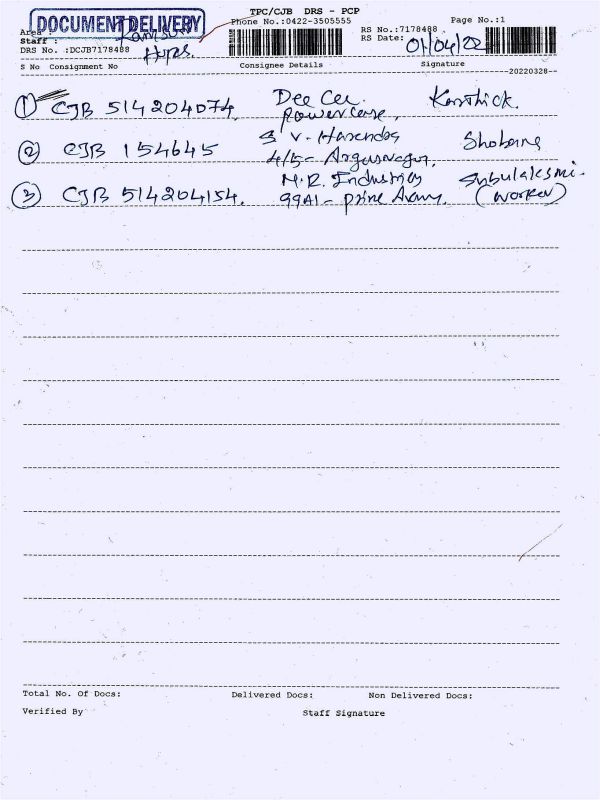 TPC/CJB DRS - PCP
DOCUMENT DELIVERY
Phone No.:0422-3505555
Page No.:1
Area
Staff :
RS No.:7178488
RS Date: 01/04/22
DRS No. :DCJB7178488
S No Consignment No Consignee Details Signature
--20220328--
① CJB 514204074. Dee Cee Karthick.
Powercare,
② CJB 154645 S V. Harendas Shobana
4/5-
③ CJB 514204154. M.R. Industries Subulaksmi.
99A1 - (worker)
Total No. Of Docs: Delivered Docs: Non Delivered Docs:
Verified By Staff Signature